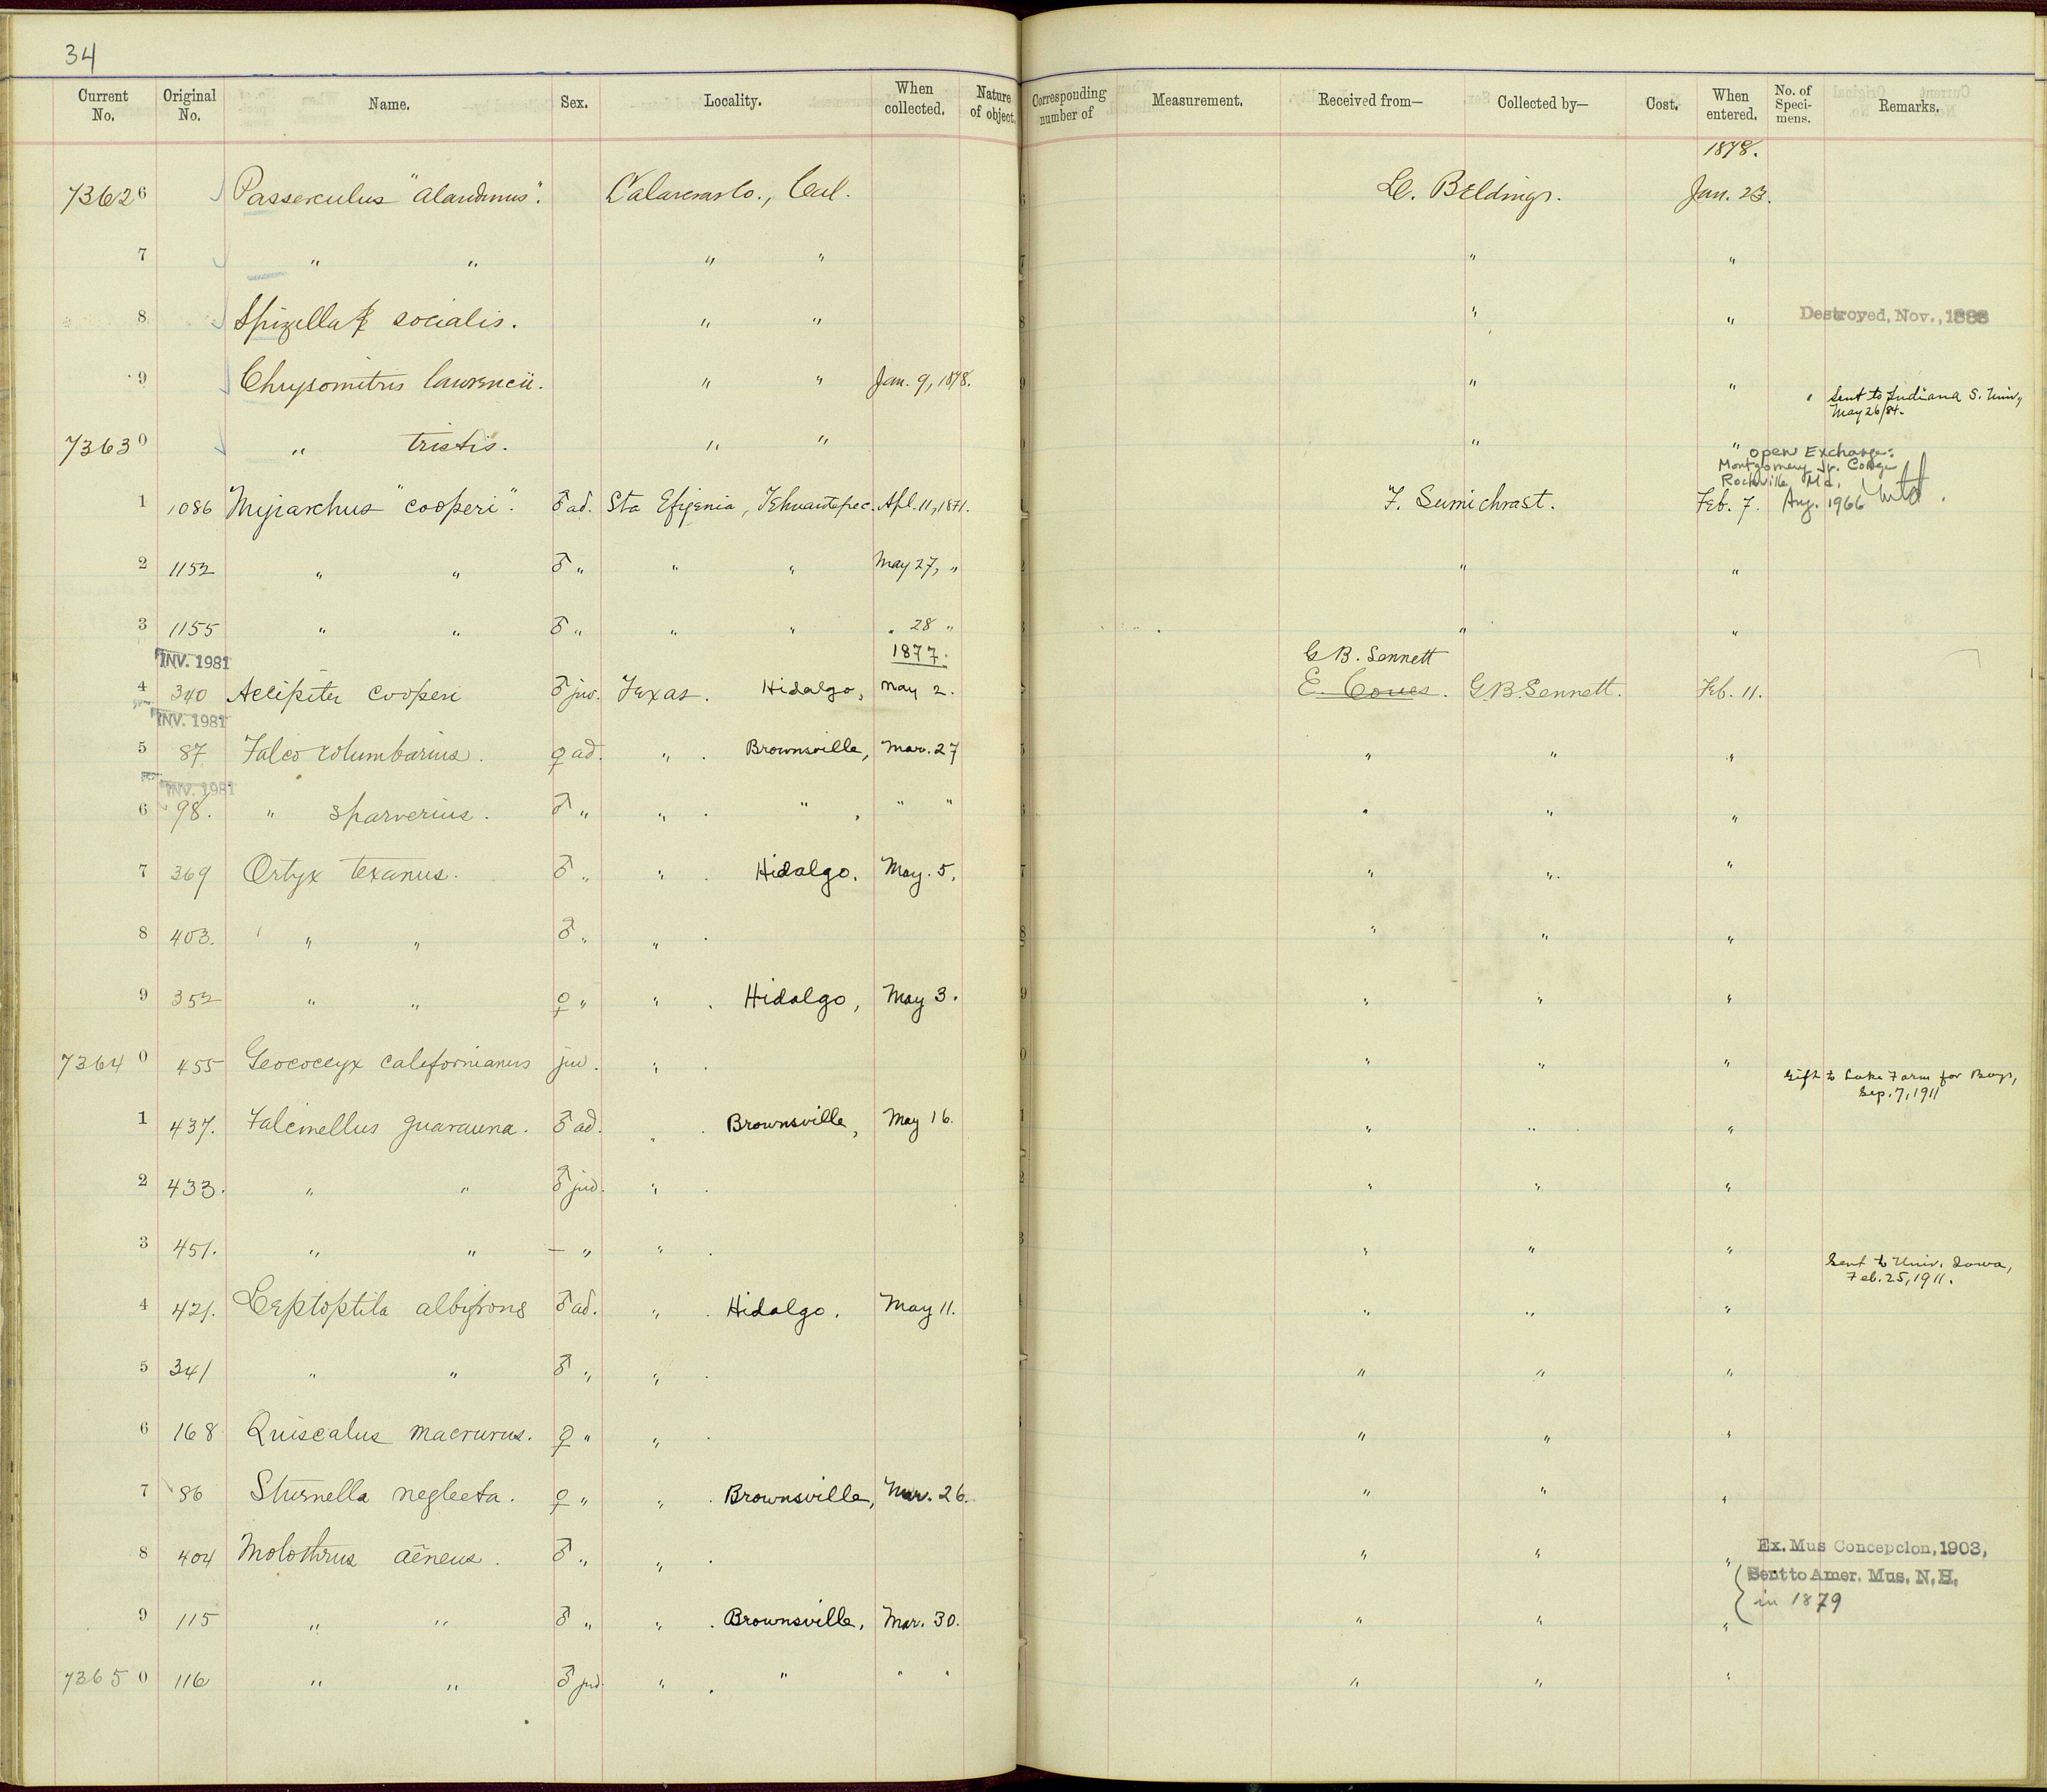 34
Current No. Original No. Name. Sex. Locality. When collected. Nature of object. Corresponding number of Measurement. Received from— Collected by— Cost. When entered. No. of Speci-mens. Remarks.
1878.
73626 Passerculus "alaudinus". Calaveras Co., Cal. L. Belding. Jan. 23.
7 " " " " " "
8 Spizella socialis. " " " " Destroyed, Nov., 1888
9 Chrysomitris lawrencii. " " Jan. 9, 1878. " "
Sent to Indiana S. Univ,
May 26/84.
73630 " tristis. " " " "
Open Exchange:
Montgomery Jr. College
Rockville Md.
1 1086 Myiarchus "cooperi". ♂ ad. Sta Efigenia, Tehuantepec. Apl. 11, 1871. F. Sumichrast. Feb. 7. Aug. 1966
2 1152 " " ♂ " " " May 27, " " "
3 1155 " " ♂ " " " " 28 " " "
INV. 1981 1877. G B. Sennett
4 340 Accipiter cooperi ♂ juv. Texas. Hidalgo, May 2. E. Coues. G B. Sennett. Feb. 11.
INV. 1981
5 87 Falco columbarius. ♀ ad. " . Brownsville, Mar. 27 " " "
INV. 1981
6 98. " sparverius. ♂ " " . " , " " " " "
7 369 Ortyx texanus. ♂ " " . Hidalgo. May. 5. " " "
8 403. " " ♂ " " . " " "
9 352 " " ♀ " " . Hidalgo, May 3. " " "
73640 455 Geococcyx californianus juv. " . " " "
Gift to Lake Farm for Boys,
Sep. 7, 1911
1 437. Falcinellus guarauna. ♂ ad. " . Brownsville, May 16. " " "
2 433. " " ♂ juv. " . " " "
3 451. " " — " " . " " "
Sent to Univ. Iowa,
Feb. 25, 1911.
4 421. Leptoptila albifrons ♂ ad. " . Hidalgo. May 11. " " "
5 341 " " ♂ " " . " " "
6 168 Quiscalus macrurus. ♀ " " . " " "
7 86 Sturnella neglecta. ♀ " " . Brownsville, Mar. 26. " " "
8 404 Molothrus aëneus. ♂ " " . " " " Ex. Mus Concepcion, 1903,
Sent to Amer. Mus. N. H.
in 1879
9 115 " " ♂ " " . Brownsville, Mar. 30. " " "
73650 116 " " ♂ juv. " . " " " " " "